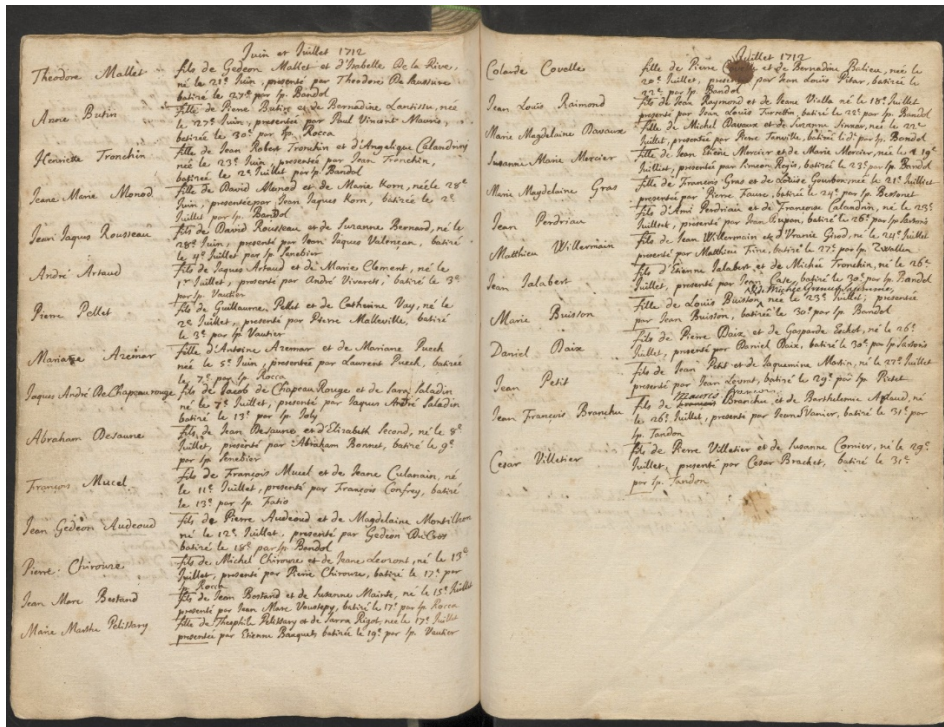 Juin et Juillet 1712
Theodore Mallet fils de Gedeon Mallet et d'Isabelle De la Rive,
né le 21e Juin, presenté par Theodore De Saussure
batizé le 27e par sp. Bandol
Annie Butin fille de Pierre Butin et de Bernadine Lantissu, née
le 27e Juin, presentée par Paul Vincent Mauris,
batizée le 30e par sp. Rocca
Henriette Tronchin fille de Jean Robert Tronchin et d'Angelique Calandriny
née le 23e Juin, presentée par Jean Tronchin,
batizée le 12e Juillet par sp. Bandol
Jeane Marie Monod fille de David Monod et de Marie Korn, née le 28e
Juin, presentée par Jean Jaques Korn, batizée le 2e
Juillet par sp. Bandol
Jean Jaques Rousseau fils de David Rousseau et de Suzanne Bernard, né le
28e Juin, presenté par Jean Jaques Valençan, batizé
le 4e Juillet par sp. Senebier
André Artaud fils de Jaques Artaud et de Marie Clement, né le
1er Juillet, presenté par André Vivarets, batizé le 3e
par sp. Vautier
Pierre Pellet fils de Guillaume Pellet et de Catherine Vay, né le
2e Juillet, presenté par Pierre Malleville, batizé
le 3e par sp. Vautier
Mariane Azemar fille d'Antoine Azemar et de Mariane Puech
née le 5e Juin, presentée par Laurent Puech, batizée
le 7e par sp. Rocca
Jaques André De Chapeaurouge fils de Jacob de Chapeau Rouge et de Sara Saladin
né le 7e Juillet, presenté par Jaques André Saladin
batizé le 13e par sp. Joly
Abraham Desaune fils de Jean Desaune et d'Elizabeth Second, né le 8e
Juillet, presenté par Abraham Bonnet, batizé le 9e
par sp. Senebier
François Mucel fils de François Mucel et de Jeane Culanain, né
le 11e Juillet, presenté par François Confrey, batizé
le 13e par sp. Fatio
Jean Gedeon Audeoud fils de Pierre Audeoud et de Magdelaine Montilhon
né le 12e Juillet, presenté par Gedeon DuCros
batizé le 18e par sp. Bandol
Pierre Chirouze fils de Michel Chirouze et de Jeane Leozont, né le 13e
Juillet, presenté par Pierre Chirouze, batizé le 17e par
sp. Rocca
Jean Marc Bestand fils de Jean Bostand et de Suzanne Mainte, né le 15e Juillet
presenté par Jean Marc Voustepy, batizé le 17e par sp. Rocca
Marie Marthe Pelissary fille de Theophile Pelissary et de Sarra Rigot, née le 17e Juillet
presentée par Etienne Banquet, batizée le 19e par sp. Vautier
Juillet 1712
Colarde Covelle fille de Pierre et de Bernardine Butieu, née le
20e Juillet, par Jean Louis Pitar, batizée le
22e par sp. Bandol
Jean Louis Raimond fils de Jean Raymond et de Jeane Vialla né le 18e Juillet
presenté par Jean Louis Turretin, batizé le 22e par sp. Bandol
Marie Magdelaine Davaux fille de Michel Davaux et de Suzanne Simar, née le 22e
Juillet, presentée par Pierre Tenville, batizée par sp. Bandol
Suzanne Marie Mercier fille de Jean Etiene Mercier et de Marie Mercier, née le 19e
Juillet, presentée par Simeon Rogis, batizée le 23e par sp. Bandol
Marie Magdelaine Gras fille de François Gras et de Louise Goudon, née le 21e Juillet
presentée par Pierre Faure, batizée le 24e par sp. Bessonet
Jean Perdriau fils d'Ami Perdriau et de Françoise Calandrin, né le 23e
Juillet, presenté par Jean Lupon, batizé le 26e par sp. Sartoris
Matthieu Willermain fils de Jean Willermain et d'Uranie Grod, né le 24e Juillet
presenté par Matthieu Fine, batizé le 27e par sp. Zwallen
Jean Jalabert fils d'Etienne Jalabert et de Michée Tronchin, né le 26e
Juillet, presenté par Jean Caze, batizé le 30e par sp. Bandol
Marie Buisson fille de Louis Buisson née le 23e Juillet, presentée
par Jean Buisson, batizée le 30e par sp. Bandol
Daniel Daix fils de Pierre Daix et de Gasparde Lochot, né le 26e
Juillet, presenté par Daniel Daix, batizé le 30e par sp. Sartoris
Jean Petit fils de Jean Petit et de Jaquemine Martin, né le 27e Juillet
presenté par Jean Loizout, batizé le 29e par sp. Pictet
Jean François Branchu fils de Maurice Branchu, et de Barthelemie Artaud, né
le 26e Juillet, presenté par Jean Vanier, batizé le 31e par
sp. Tandon
Cesar Villetier fils de Pierre Villetier et de Susanne Cornier, né le 29e
Juillet, presenté par Cesar Brachet, batizé le 31e
par sp. Tandon